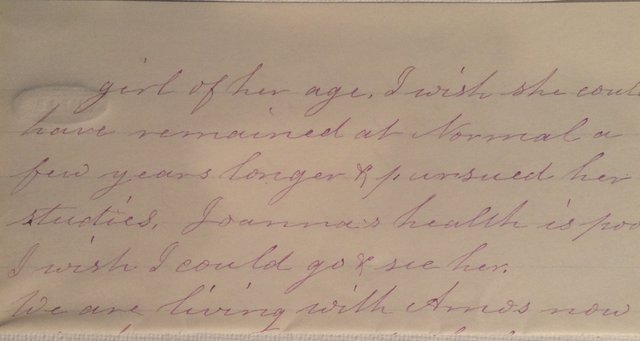 girl of her age. I wish she could
have remained at Normal a
few years longer & pursued her
studies. Joanna's health is poo
I wish I could go & see her.
We are living with Amos now